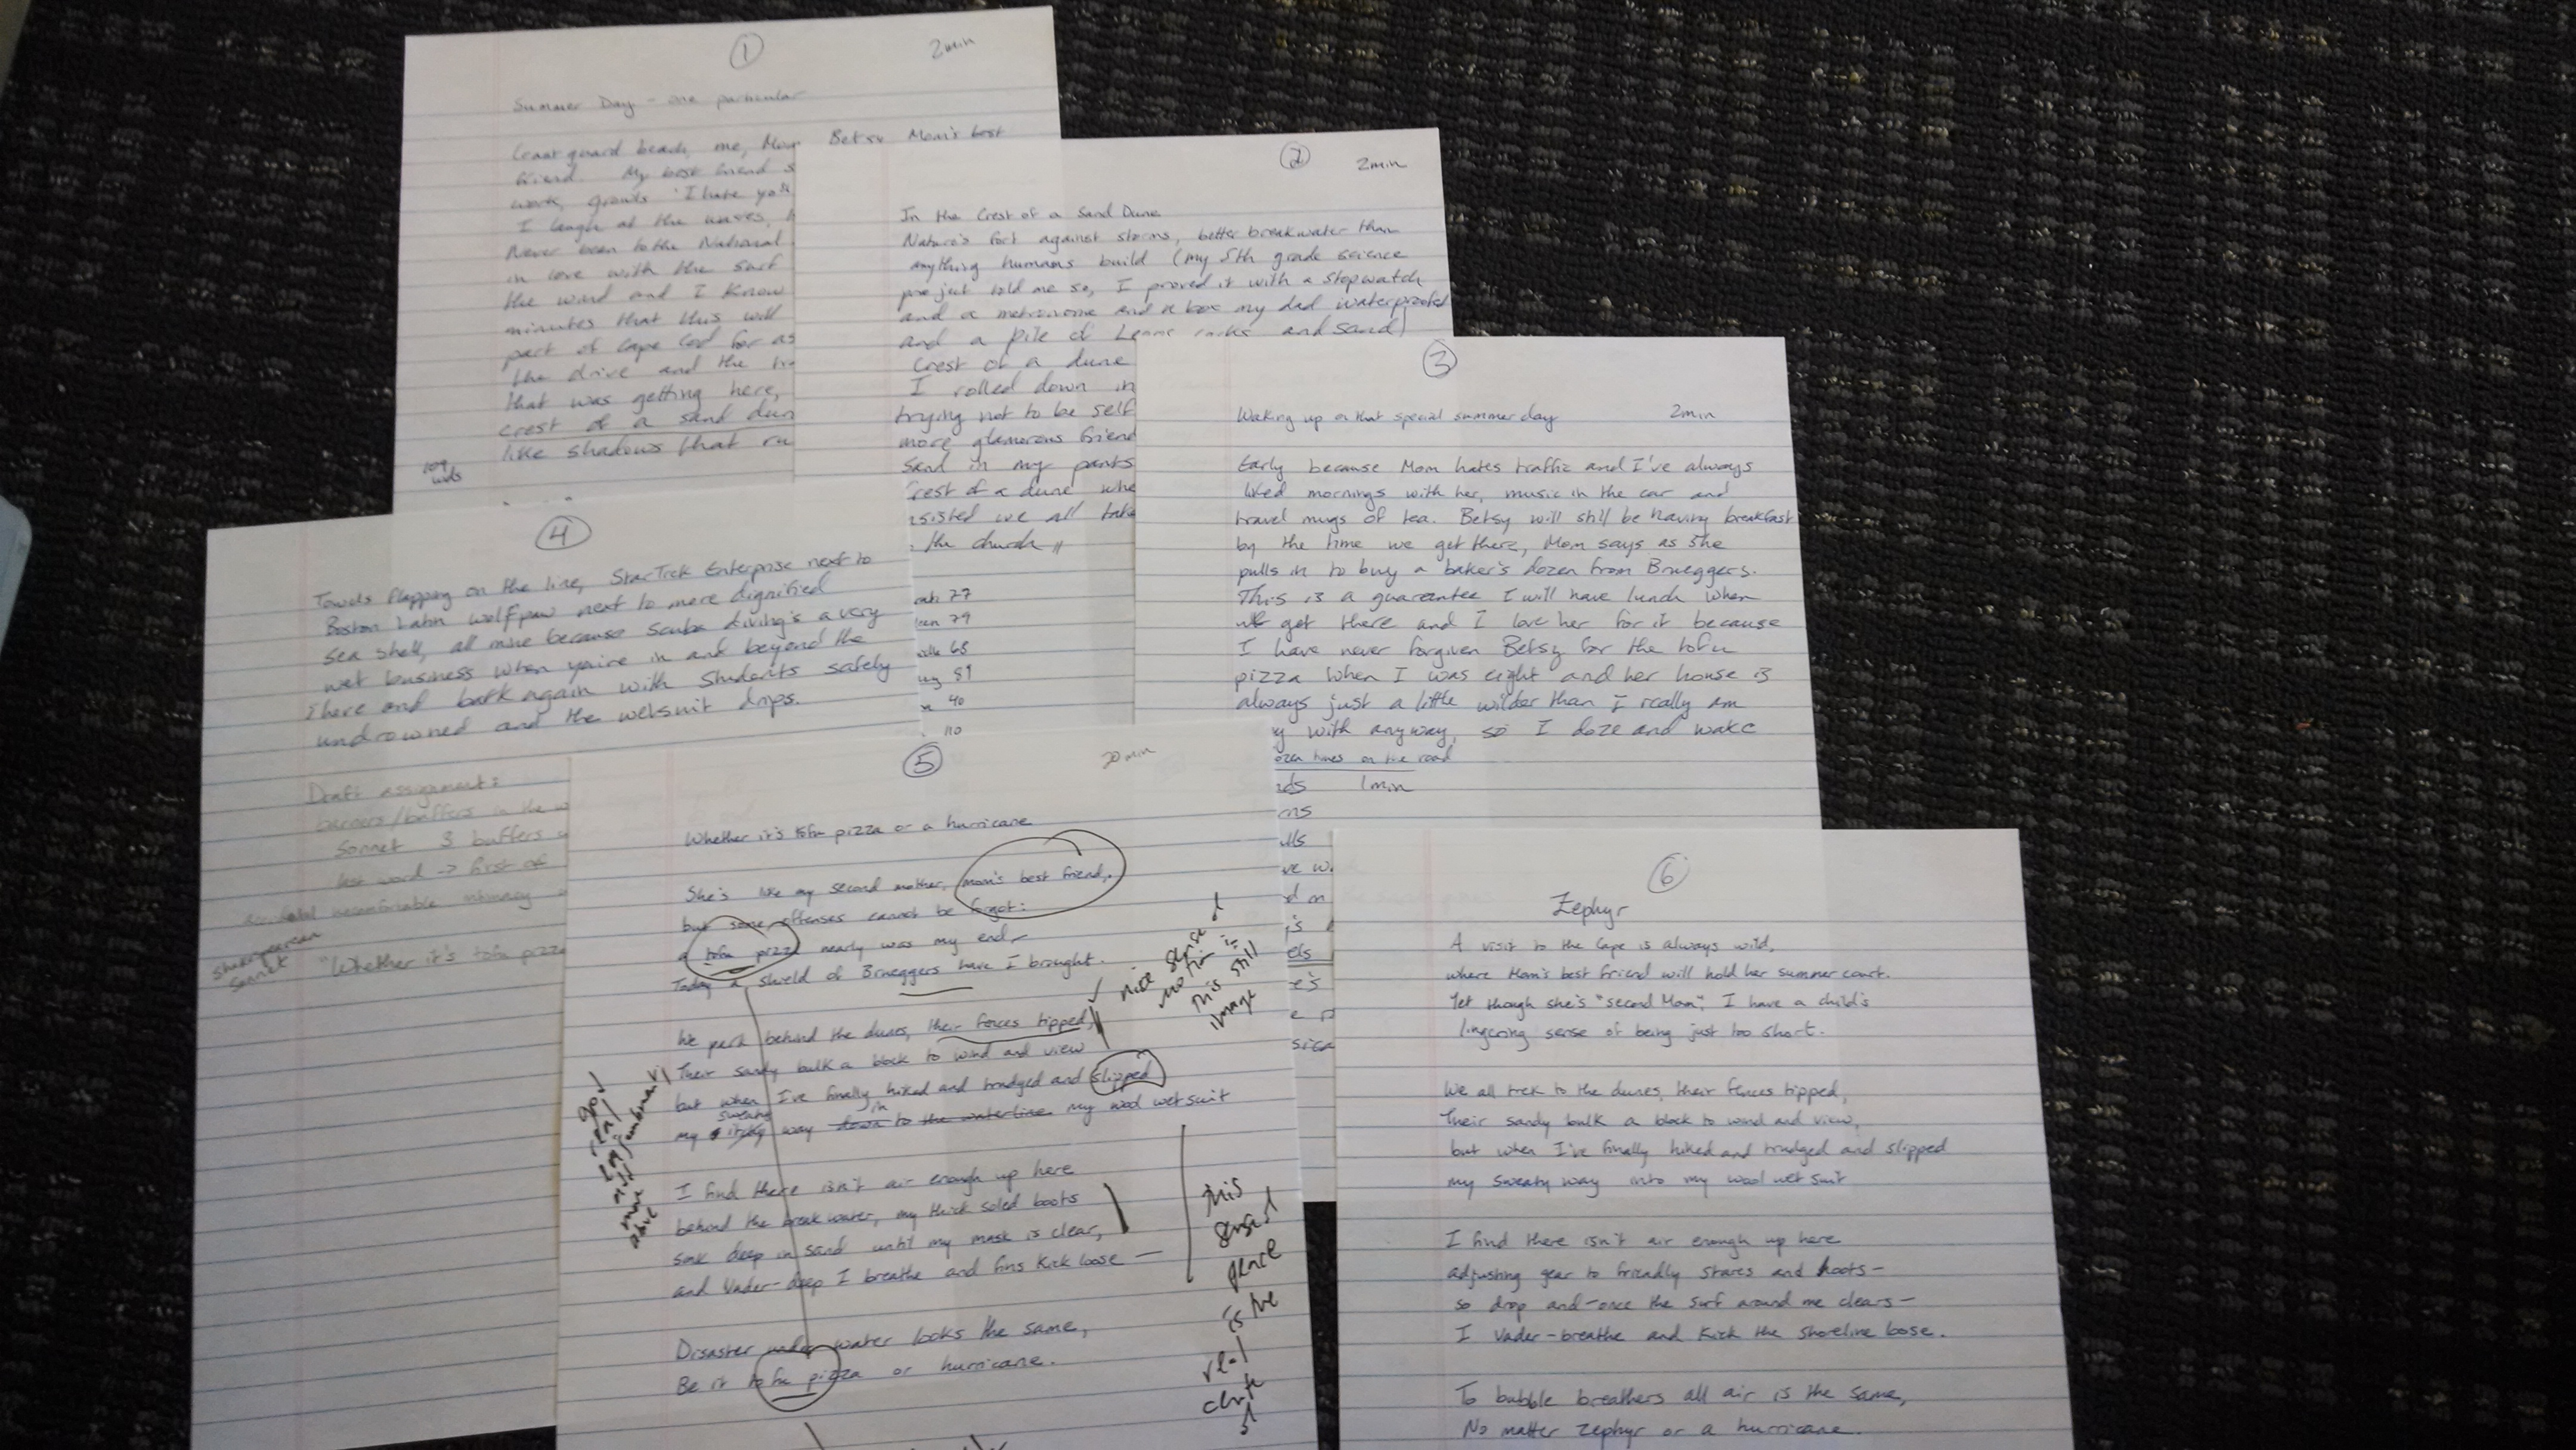 1
2min
Summer Day - one particular
Coast guard beach, me, Mom
Betsy Mom's best
friend. My best friend s
work, growls "I hate you"
I laugh at the waves,
Never been to the National
in love with the surf
the wind and I know
minutes that this will
part of Cape Cod for as
the drive and the
that was getting here,
crest of a sand dun
like shadows that ru
109
wds
2
2min
In the Crest of a Sand Dune
Nature's fort against storms, better breakwater than
anything humans build (my 5th grade science
project told me so, I proved it with a stopwatch
and a metronome and a box my dad waterproofed
and a pile of Legos rocks and sand)
Crest of a dune
I rolled down in
trying not to be self
more glamorous friend
Sand in my pants
Crest of a dune whe
nsisted we all take
the church
77
79
68
89
40
110
3
Waking up on that special summer day
2min
Early because Mom hates traffic and I've always
liked mornings with her, music in the car and
travel mugs of tea. Betsy will still be having breakfast
by the time we get there, Mom says as she
pulls in to buy a baker's dozen from Brueggers.
This is a guarantee I will have lunch when
we get there and I love her for it because
I have never forgiven Betsy for the tofu
pizza when I was eight and her house is
always just a little wilder than I really am
y with anyway, so I doze and wake
ozen times on the road
ds 1min
4
Towels flapping on the line, StarTrek Enterprise next to
Boston Latin wolfpaw next to more dignified
sea shell, all mine because scuba diving's a very
wet business when you're in and beyond the
There and back again with students safely
undrowned and the wetsuit drips.
Draft assignment:
barriers/buffers in the w
Sonnet 3 buffers
last word -> first of
uncomfortable intimacy
shakespearean
sonnet
"Whether it's tofu pizza
5
20min
Whether it's tofu pizza or a hurricane
She's like my second mother, mom's best friend,
but some offenses cannot be forgot:
a tofu pizza nearly was my end.
Today a shield of Brueggers have I brought.
We park behind the dunes, their fences tipped,
Their sandy bulk a block to wind and view
but when I've finally hiked and trudged and slipped
my sweaty way in to my wool wetsuit
down to the waterline
nice sense of
motion in
this still
image
I find there isn't air enough up here
behind the breakwater, my thick soled boots
sink deep in sand until my mask is clear,
and Vader-deep I breathe and fins kick loose —
this
sense of
place
is the
real
Disaster under water looks the same,
Be it tofu pizza or hurricane.
6
Zephyr
A visit to the Cape is always wild,
where Mom's best friend will hold her summer court.
Yet though she's "second Mom", I have a child's
lingering sense of being just too short.
We all trek to the dunes, their fences tipped,
Their sandy bulk a block to wind and view,
but when I've finally hiked and trudged and slipped
my sweaty way into my wool wet suit
I find there isn't air enough up here
adjusting gear to friendly stares and hoots-
so drop and-once the surf around me clears-
I Vader-breathe and kick the shoreline loose.
To bubble breathers all air is the same,
No matter zephyr or a hurricane.